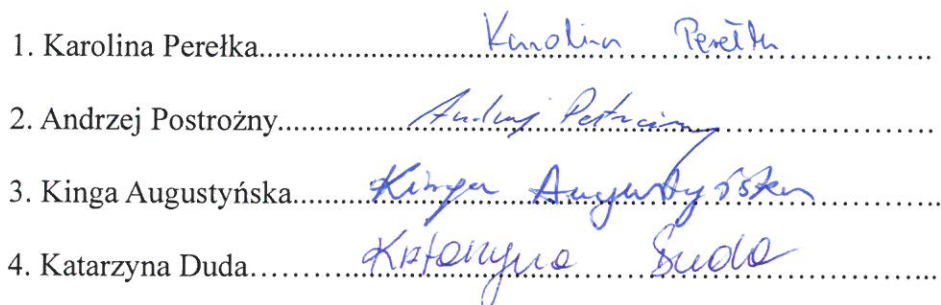 1. Karolina Perełka........................Karolina Perełka........................
2. Andrzej Postrożny........................Andrzej........................
3. Kinga Augustyńska........................Kinga Augustyńska........................
4. Katarzyna Duda........................Katarzyna Duda........................